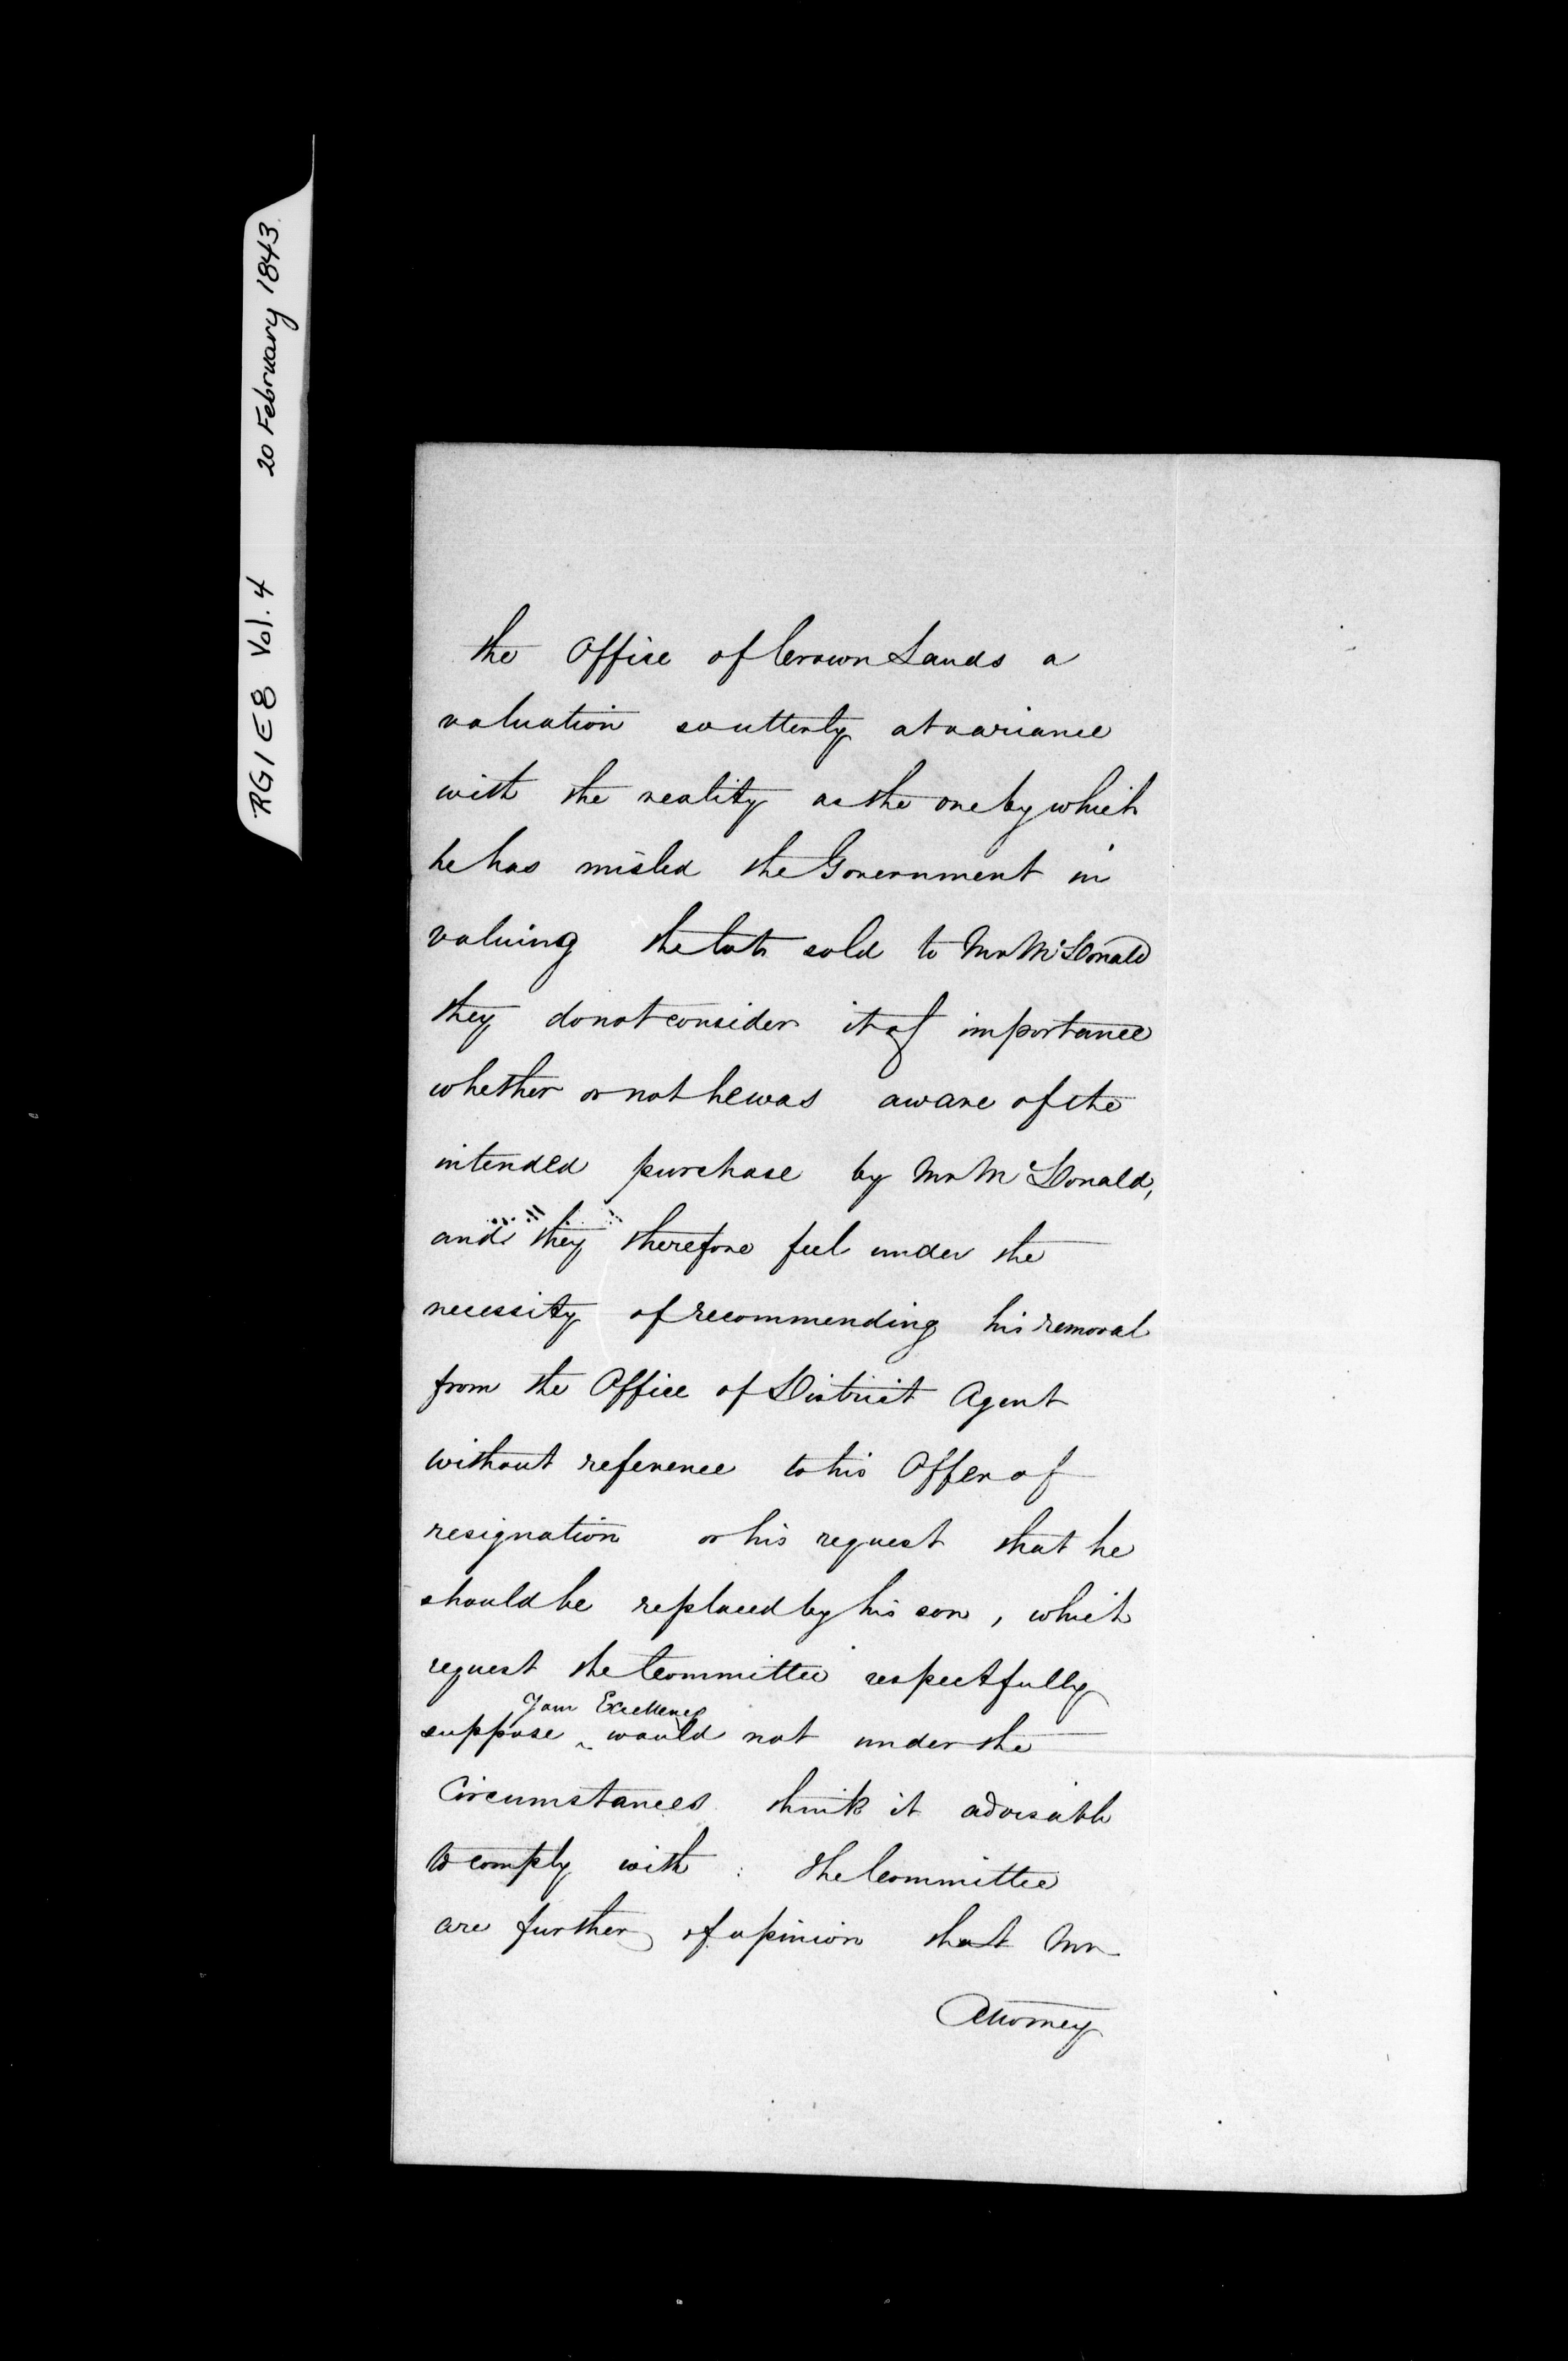 RG1 E8 Vol. 4 20 February 1843.
the Office of Crown Lands a
valuation so utterly at variance
with the reality as the one by which
he has misled the Government in
valuing the lots sold to Mr McDonald
they do not consider it of importance
whether or not he was aware of the
intended purchase by Mr McDonald,
and they therefore feel under the
necessity of recommending his removal
from the Office of District Agent
without reference to his Offer of
resignation or his request that he
should be replaced by his son, which
request the Committee respectfully
Your Excellency
suppose ^ would not under the
Circumstances think it advisable
to comply with : The Committee
are further of opinion that Mr
Attorney